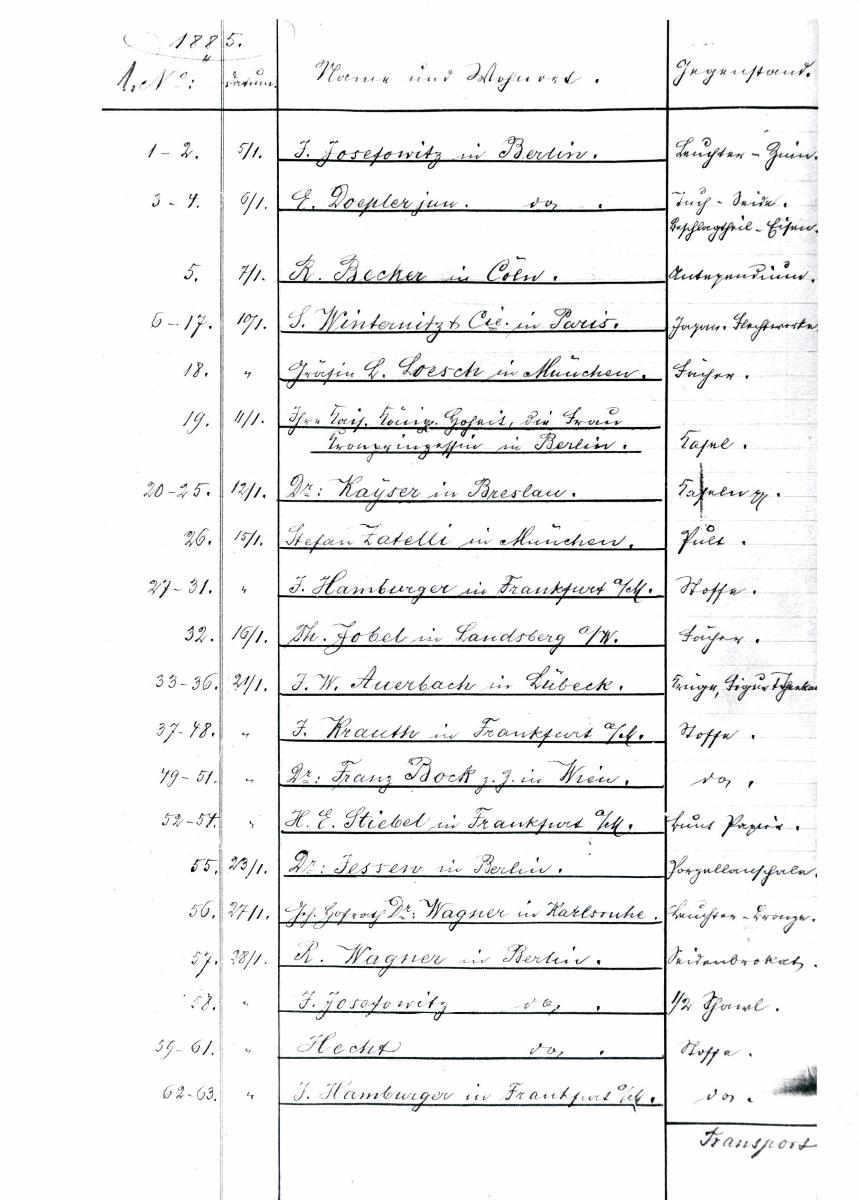 1885.
1. No: Datum. Name und Wohnort. Gegenstand.
1-2. 5/1. J. Josefowitz in Berlin. Leuchter - Zinn.
3-4. 6/1. E. Doepler jun. do. Tuch - Seide.
Beschlagtheil - Eisen.
5. 7/1. R. Becker in Cöln. Antependium.
6-17. 10/1. S. Winternitz & Cie. in Paris. Japan. Flechtwerke
18. " Gräfin L. Loesch in München. Fächer.
19. 11/1. Ihre Kais. Königl. Hoheit, die Frau
Kronprinzessin in Berlin. Tafel.
20-25. 12/1. Dr: Kayser in Breslau. Tafeln pp.
26. 15/1. Stefan Zatelli in München. Pult.
27-31. " J. Hamburger in Frankfurt a/M. Stoffe.
32. 16/1. Th. Jobel in Landsberg a/W. Fächer.
33-36. 21/1. J. W. Auerbach in Lübeck. Krüge, Figur
37-48. " J. Krauth in Frankfurt a/M. Stoffe.
49-51. " Dr: Franz Bock z. Z. in Wien. do.
52-54. " H. E. Stiebel in Frankfurt a/M. Bunt Papier.
55. 23/1. Dr: Jessen in Berlin. Porzellanschale.
56. 27/1. Geh. Hofrath Dr: Wagner in Karlsruhe. Leuchter - Bronze.
57. 28/1. R. Wagner in Berlin. Seidenbrokat.
58. " J. Josefowitz do. 1/2 Shawl.
59-61. " Hecht do. Stoffe.
62-63. " J. Hamburger in Frankfurt a/M. do.
Transport